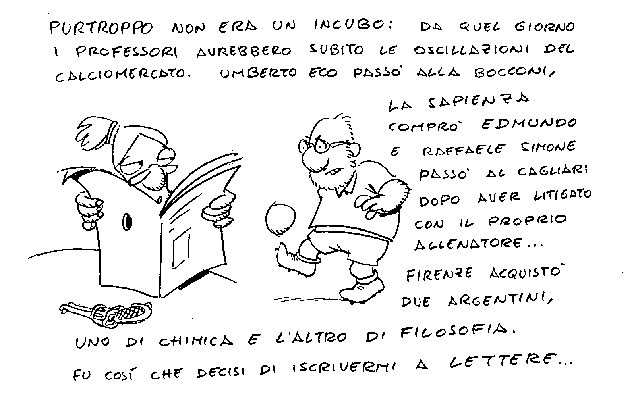 PURTROPPO NON ERA UN INCUBO: DA QUEL GIORNO
I PROFESSORI AVREBBERO SUBITO LE OSCILLAZIONI DEL
CALCIOMERCATO. UMBERTO ECO PASSO' ALLA BOCCONI,
LA SAPIENZA
COMPRO' EDMUNDO
E RAFFAELE SIMONE
PASSO' AL CAGLIARI
DOPO AVER LITIGATO
CON IL PROPRIO
ALLENATORE...
FIRENZE ACQUISTO'
DUE ARGENTINI,
UNO DI CHIMICA E L'ALTRO DI FILOSOFIA.
FU COSÍ CHE DECISI DI ISCRIVERMI A LETTERE...